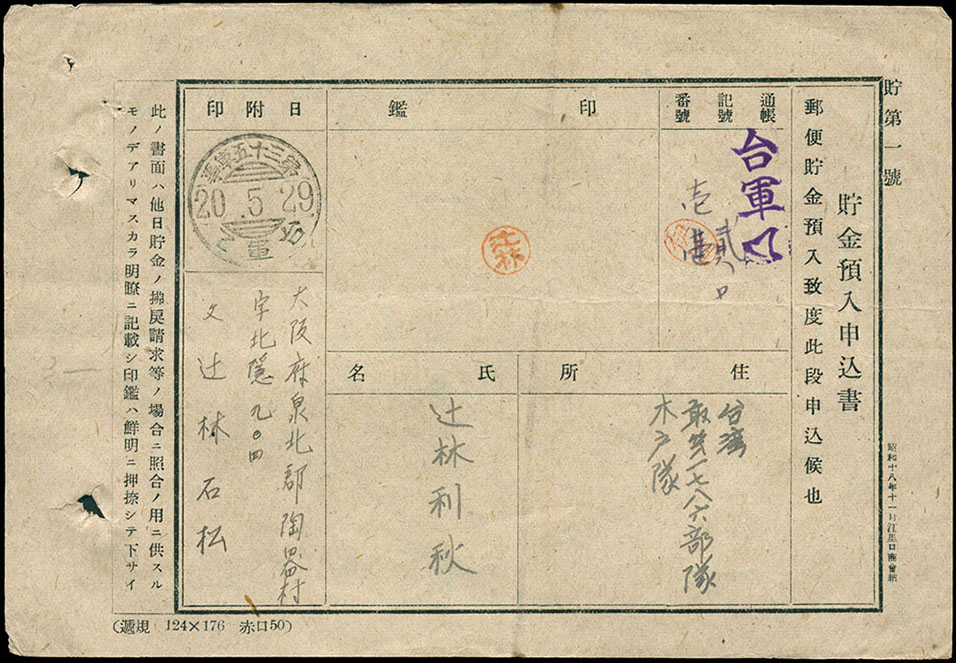 貯第一號
貯金預入申込書
昭和十八年十一月江川口商會納
郵便貯金預入致度此段申込候也
通帳
記號
番號
台軍い
貳
壱
印鑑
辻林
住所
台湾
敢第一七八六部隊
木戸隊
氏名
辻林利秋
日附印
第三十五野
20.5.29
軍
大阪府泉北郡陶器村
字北 九〇四
父 辻林石松
此ノ書面ハ他日貯金ノ拂戻請求等ノ場合ニ照合ノ用ニ供スル
モノデアリマスカラ明瞭ニ記載シ印鑑ハ鮮明ニ押捺シテ下サイ
(遞規 124×176 赤口50)